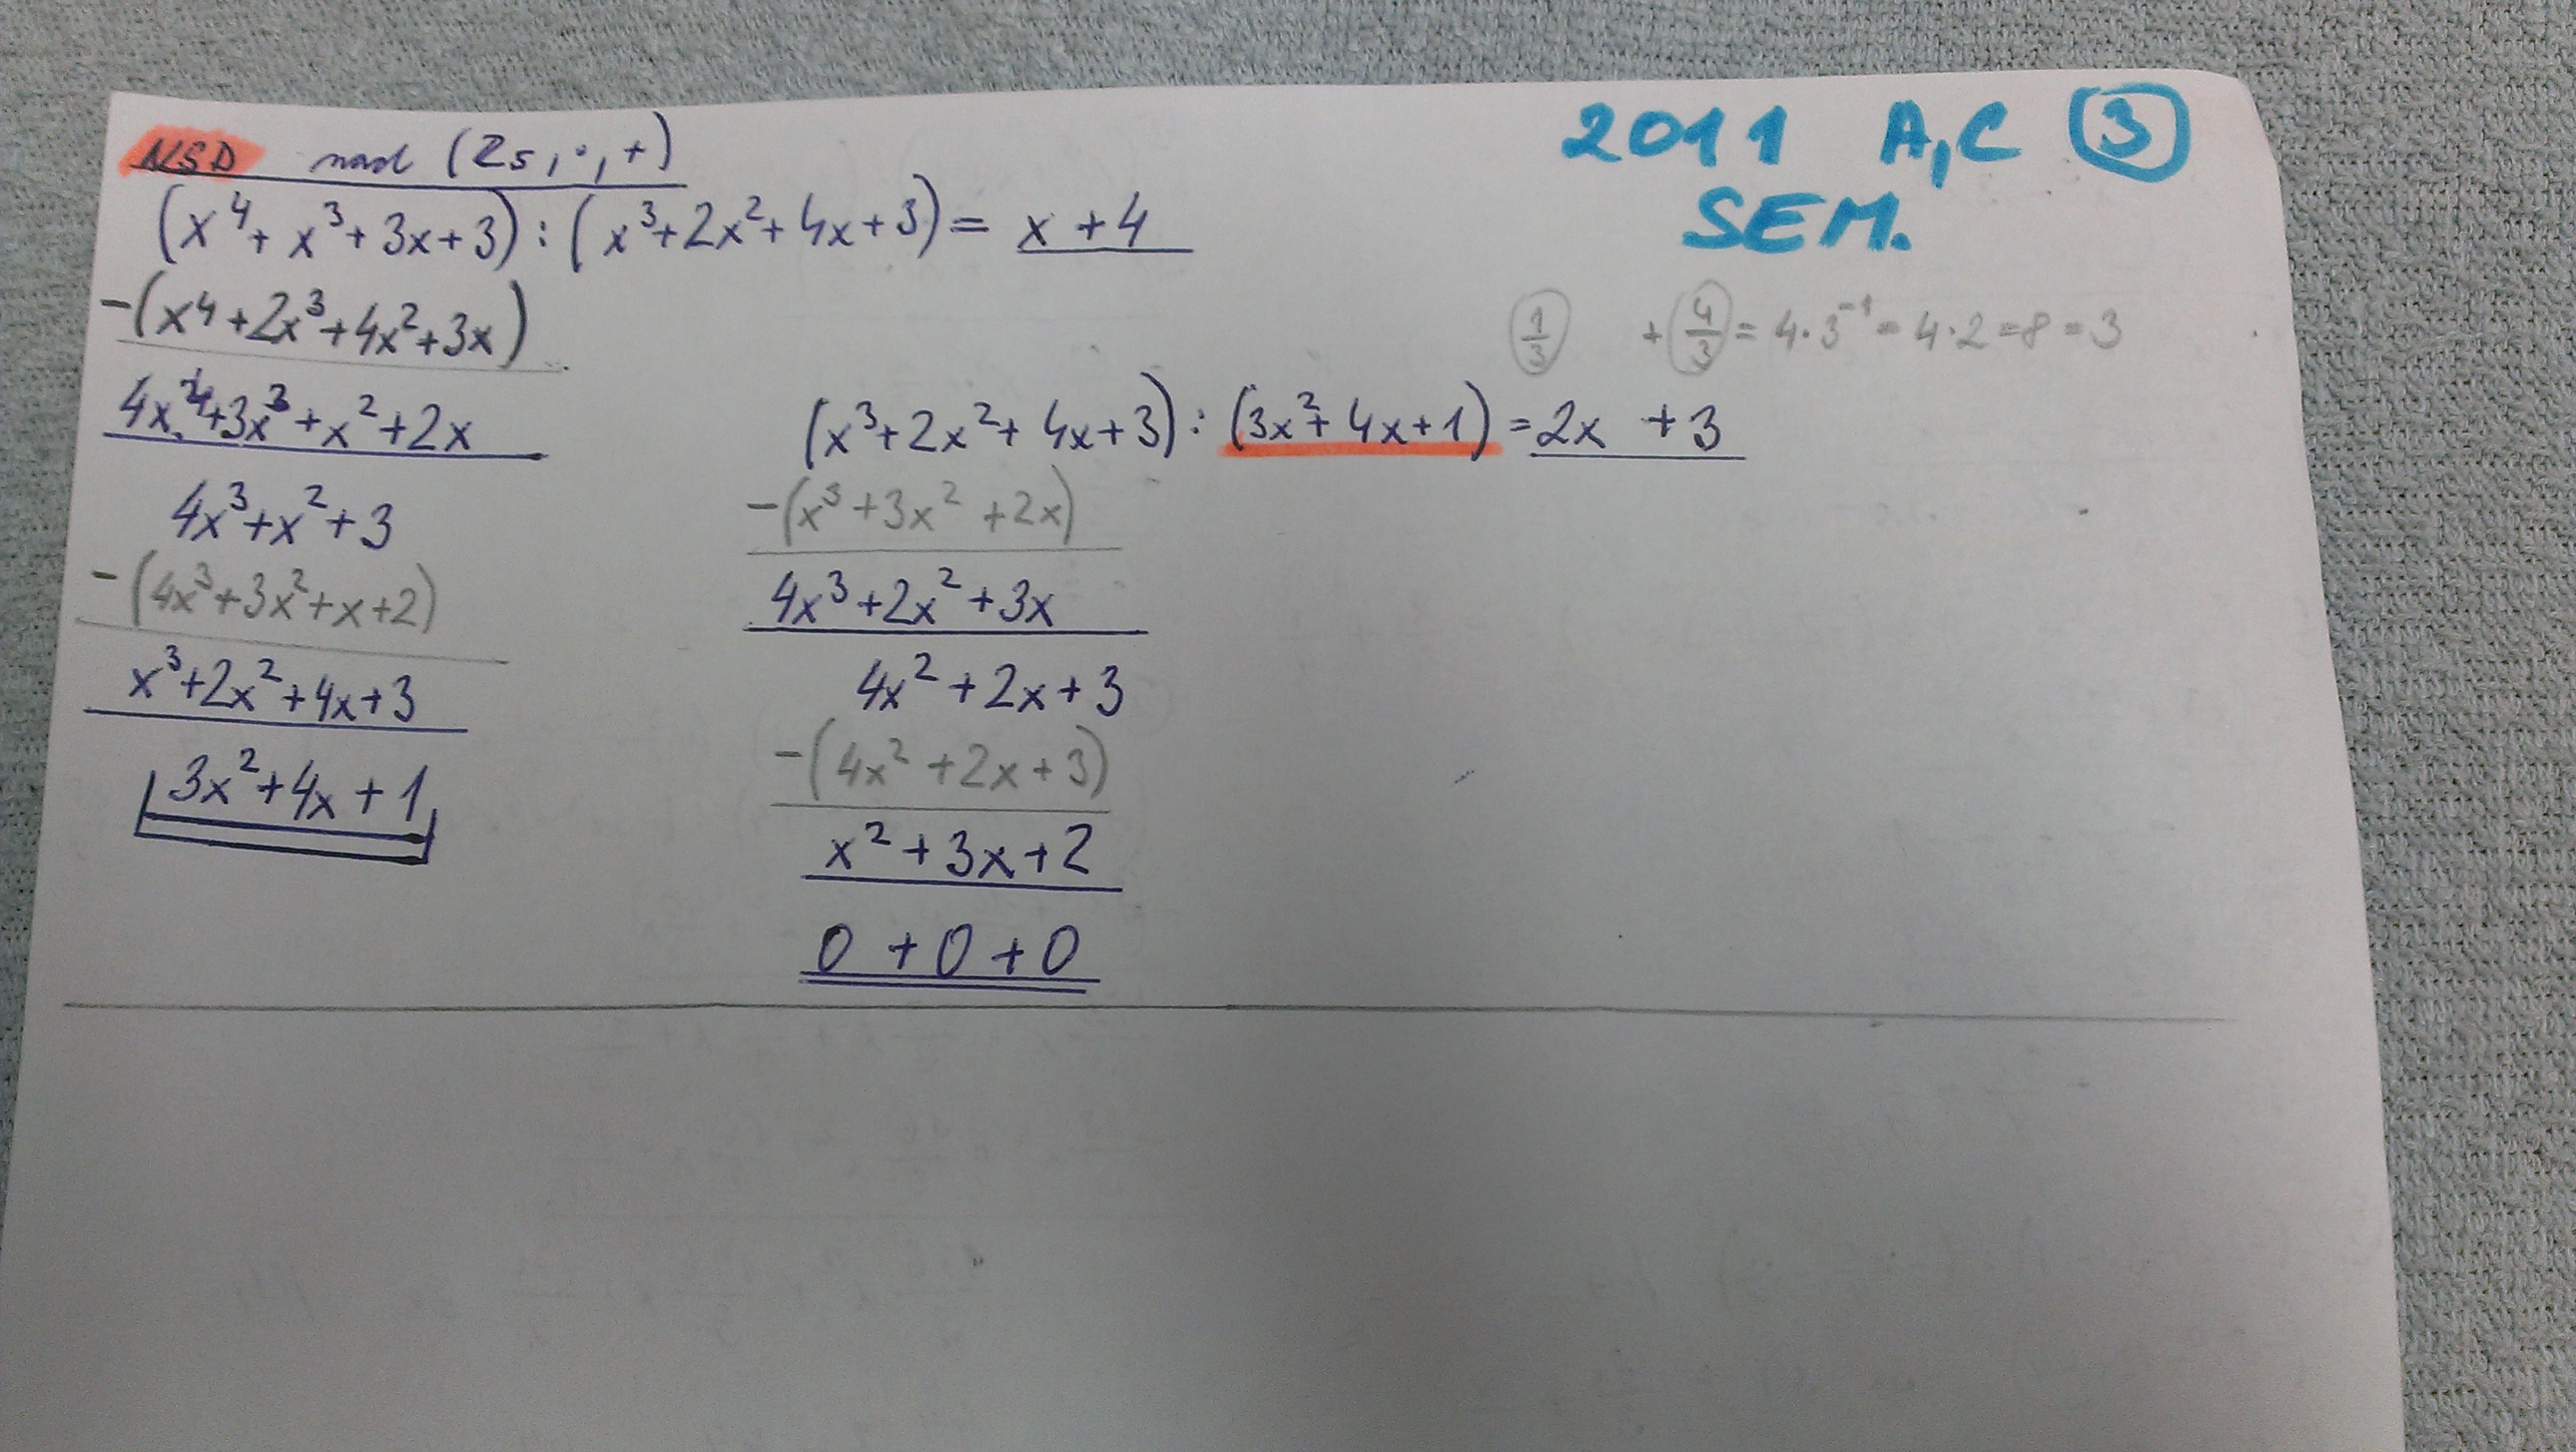 NSD nad (Z5, ·, +)
2011 A,C 3
SEM.
(x⁴ + x³ + 3x + 3) : (x³ + 2x² + 4x + 3) = x + 4
-(x⁴ + 2x³ + 4x² + 3x)
4x⁴ + 3x³ + x² + 2x
4x³ + x² + 3
-(4x³ + 3x² + x + 2)
x³ + 2x² + 4x + 3
3x² + 4x + 1
1/3 + 4/3 = 4·3⁻¹ = 4·2 = 8 = 3
(x³ + 2x² + 4x + 3) : (3x² + 4x + 1) = 2x + 3
-(x³ + 3x² + 2x)
4x³ + 2x² + 3x
4x² + 2x + 3
-(4x² + 2x + 3)
x² + 3x + 2
0 + 0 + 0